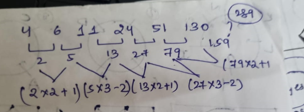 289
4 6 11 24 51 130 ?
2 5 13 27 79 159
(79×2+1
(2×2+1) (5×3-2) (13×2+1) (27×3-2)